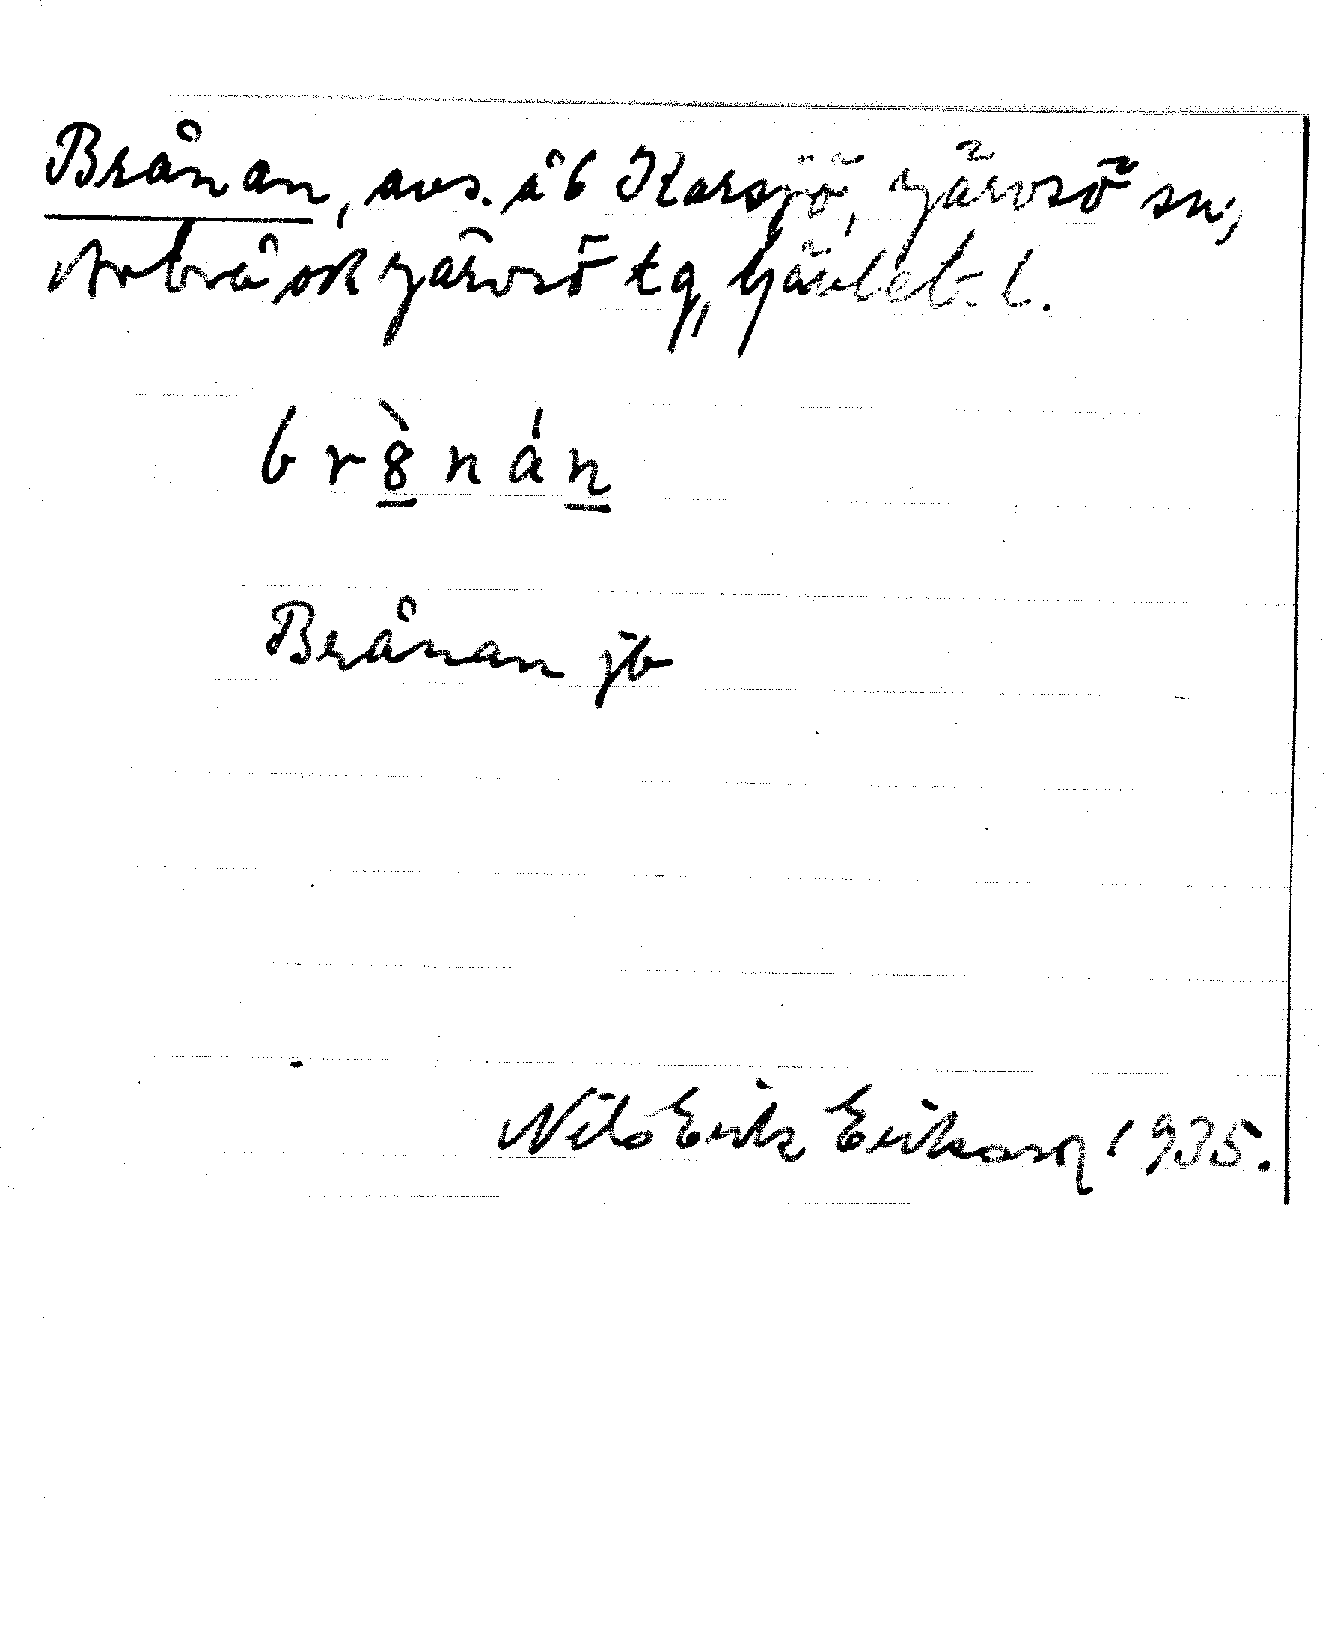 Brånan, avs. å 6 Karsjö, Järvsö sn,
Arbrå ock Järvsö tg, Gävleb. l.
br8̱̀nán̲
Brånan jb
Nils Erik Erikson 1935.